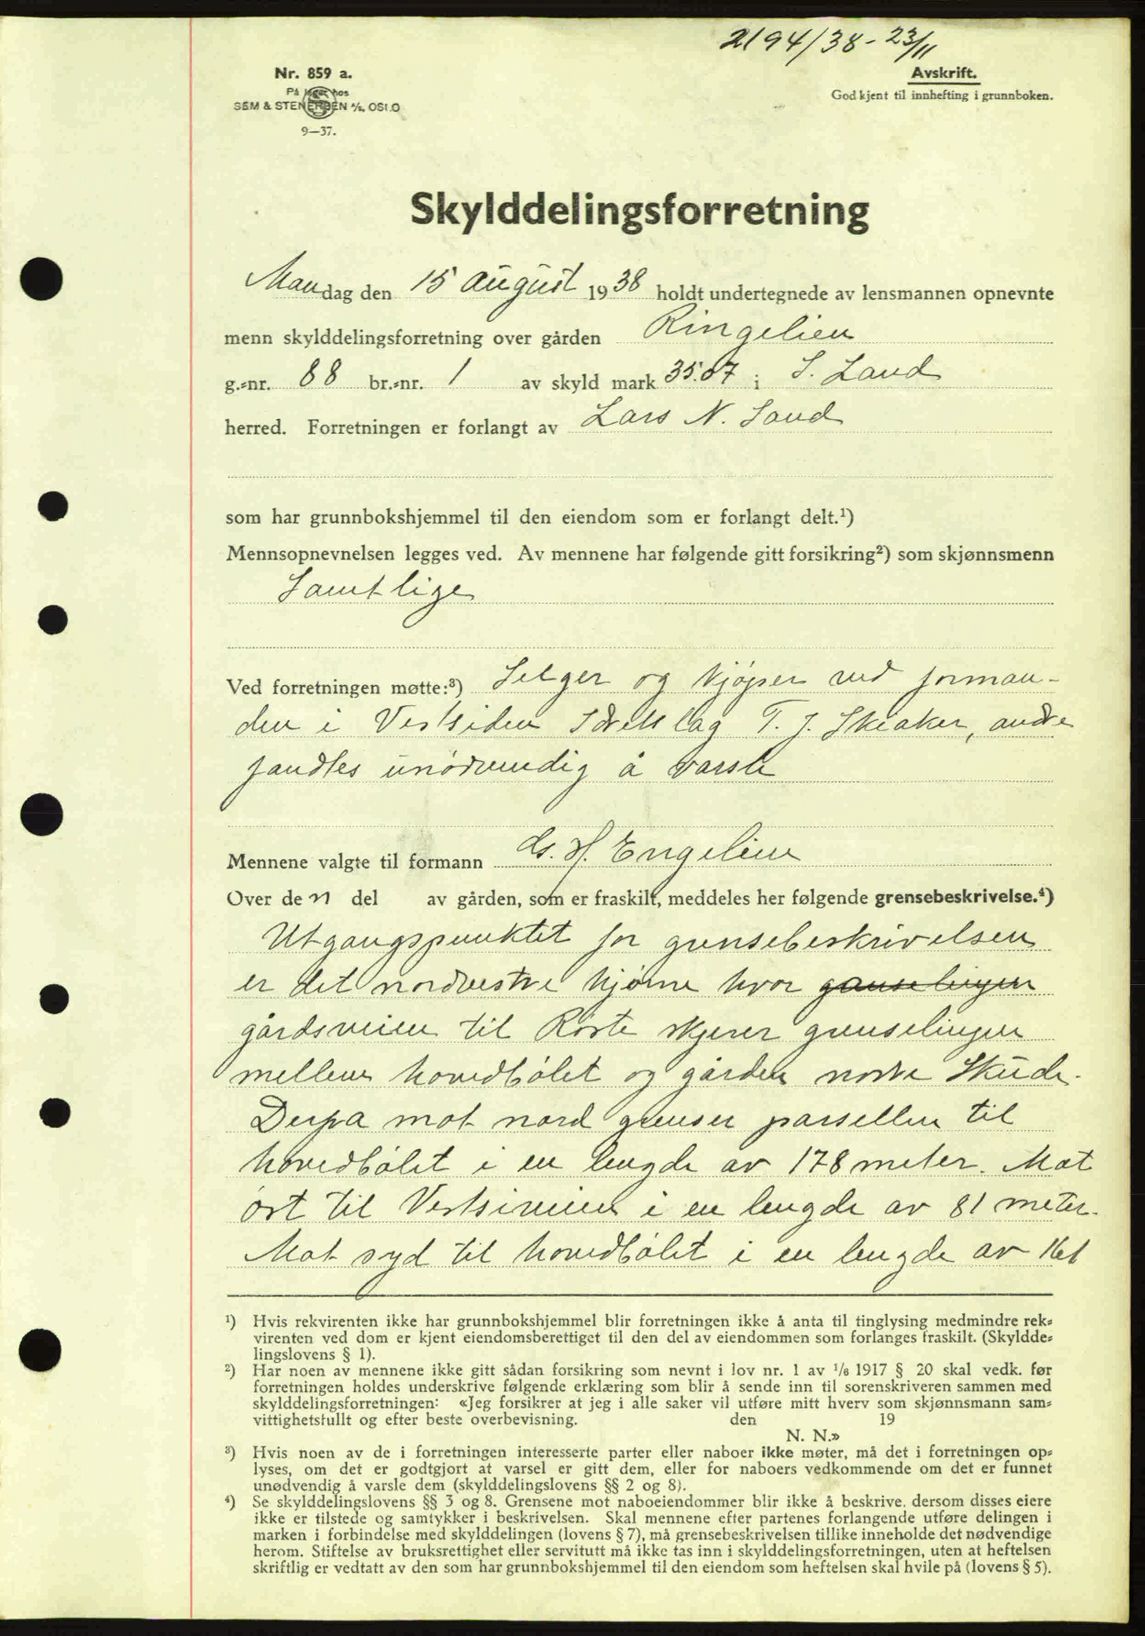 2194/38 - 23/11
Nr. 859 a.
Avskrift.
På lager hos
SEM & STENERSEN A/S, OSLO
God kjent til innhefting i grunnboken.
9—37.
Skylddelingsforretning
Mandag den 15 august 1938 holdt undertegnede av lensmannen opnevnte
menn skylddelingsforretning over gården Ringelien
g.-nr. 88 br.-nr. 1 av skyld mark 35.07 i S. Land
herred. Forretningen er forlangt av Lars N. Sand
som har grunnbokshjemmel til den eiendom som er forlangt delt.¹)
Mennsopnevnelsen legges ved. Av mennene har følgende gitt forsikring²) som skjønnsmenn
Samtlige
Ved forretningen møtte:³) Selger og kjøper ved forman-
den i Vestsiden Idrettslag T. J. Skiaker, andre
fandtes unødvendig å varsle
Mennene valgte til formann G. H. Engelien
Over den del av gården, som er fraskilt, meddeles her følgende grensebeskrivelse.⁴)
Utgangspunktet for grensebeskrivelsen
er det nordvestre hjørne hvor
gårdsveien til Røste skjerer grenselinjen
mellem hovedbølet og gården nordre Skude.
Derpå mot nord grenser parsellen til
hovedbølet i en lengde av 178 meter. Mot
øst til Vestsiveien i en lengde av 81 meter.
Mot syd til hovedbølet i en lengde av 161
¹) Hvis rekvirenten ikke har grunnbokshjemmel blir forretningen ikke å anta til tinglysing medmindre rek-
virenten ved dom er kjent eiendomsberettiget til den del av eiendommen som forlanges fraskilt. (Skyldde-
lingslovens § 1).
²) Har noen av mennene ikke gitt sådan forsikring som nevnt i lov nr. 1 av 1/6 1917 § 20 skal vedk. før
forretningen holdes underskrive følgende erklæring som blir å sende inn til sorenskriveren sammen med
skylddelingsforretningen: «Jeg forsikrer at jeg i alle saker vil utføre mitt hverv som skjønnsmann sam-
vittighetsfullt og efter beste overbevisning. den 19
N. N.»
³) Hvis noen av de i forretningen interesserte parter eller naboer ikke møter, må det i forretningen op-
lyses, om det er godtgjort at varsel er gitt dem, eller for naboers vedkommende om det er funnet
unødvendig å varsle dem (skylddelingslovens §§ 2 og 8).
⁴) Se skylddelingslovens §§ 3 og 8. Grensene mot naboeiendommer blir ikke å beskrive, dersom disses eiere
ikke er tilstede og samtykker i beskrivelsen. Skal mennene efter partenes forlangende utføre delingen i
marken i forbindelse med skylddelingen (lovens § 7), må grensebeskrivelsen tillike inneholde det nødvendige
herom. Stiftelse av bruksrettighet eller servitutt må ikke tas inn i skylddelingsforretningen, uten at heftelsen
skriftlig er vedtatt av den som har grunnbokshjemmel til den eiendom som heftelsen skal hvile på (lovens § 5).